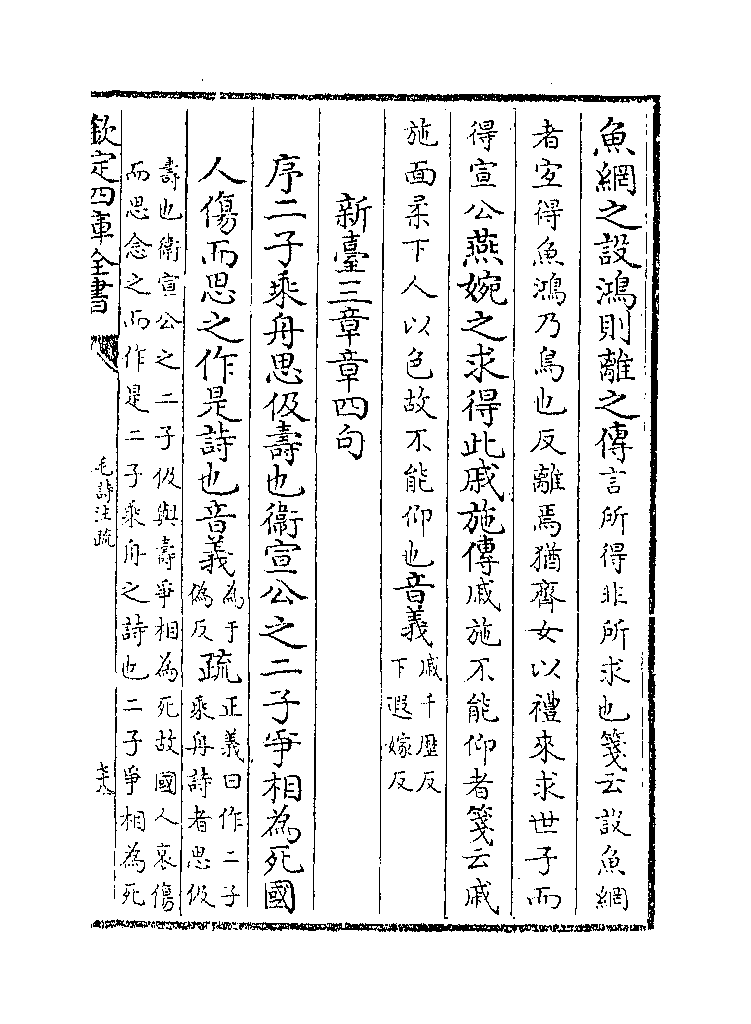 魚網之設鴻則離之傳言所得非所求也箋云設魚網
者宜得魚鴻乃鳥也反離焉猶齊女以禮來求世子而
得宣公燕婉之求得此戚施傳戚施不能仰者箋云戚
施面柔下人以色故不能仰也音義戚千歷反
下遐嫁反
新臺三章章四句
序二子乘舟思伋壽也衞宣公之二子爭相為死國
人傷而思之作是詩也音義為于
偽反疏正義曰作二子
乘舟詩者思伋
壽也衛宣公之二子伋與壽爭相為死故國人哀傷
而思念之而作是二子乘舟之詩也二子爭相為死
欽定四庫全書
毛詩注疏